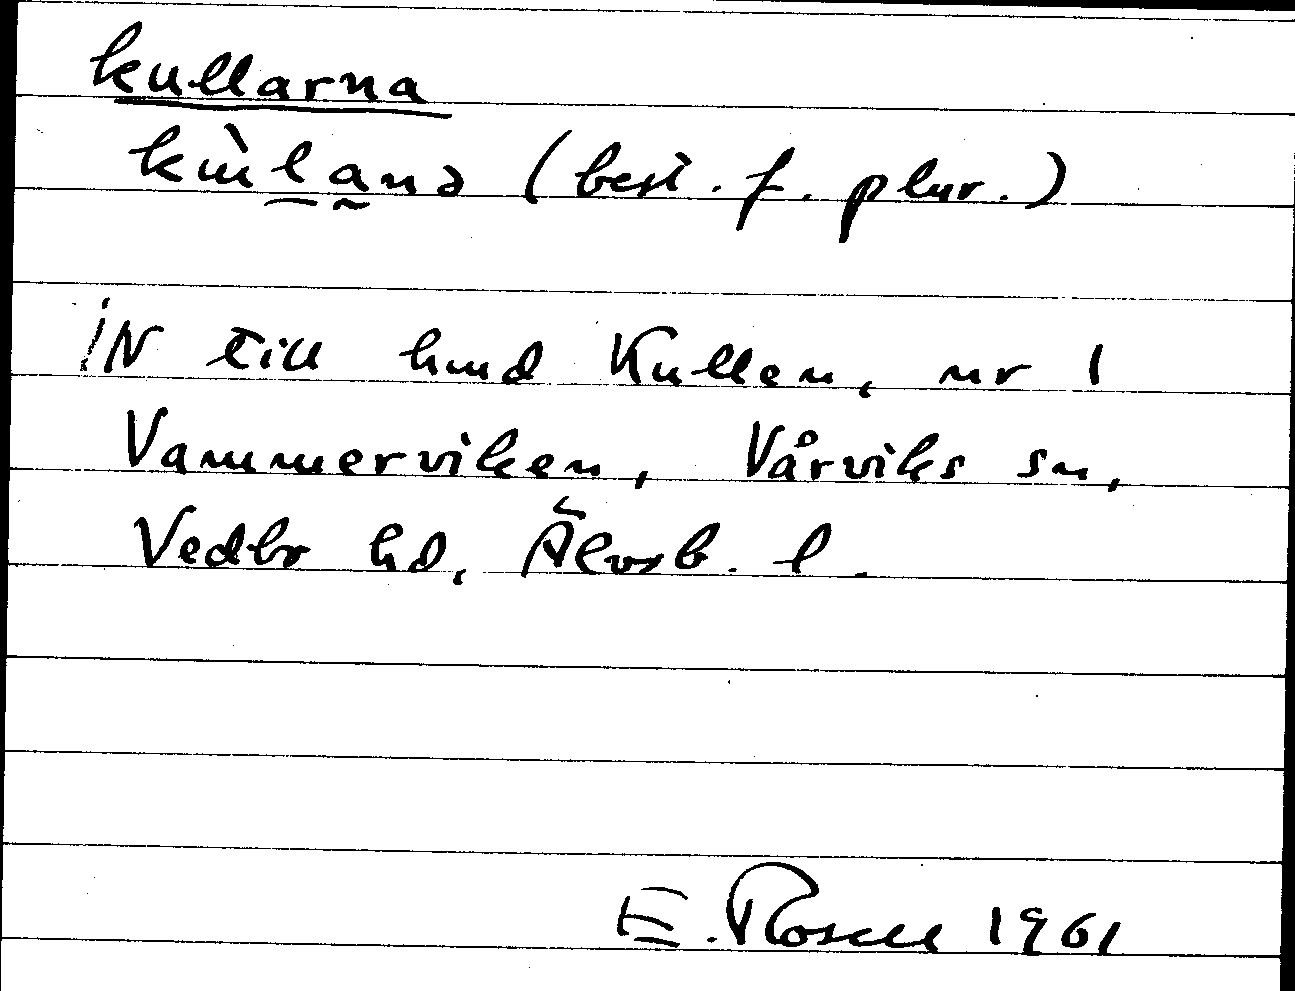 kullarna
kùl̠a̰nə (best. f. plur.)
IN till hmd Kullen, nr 1
Vammerviken, Vårviks sn,
Vedbo hd, Älvsb. l.
E. Rosell 1961